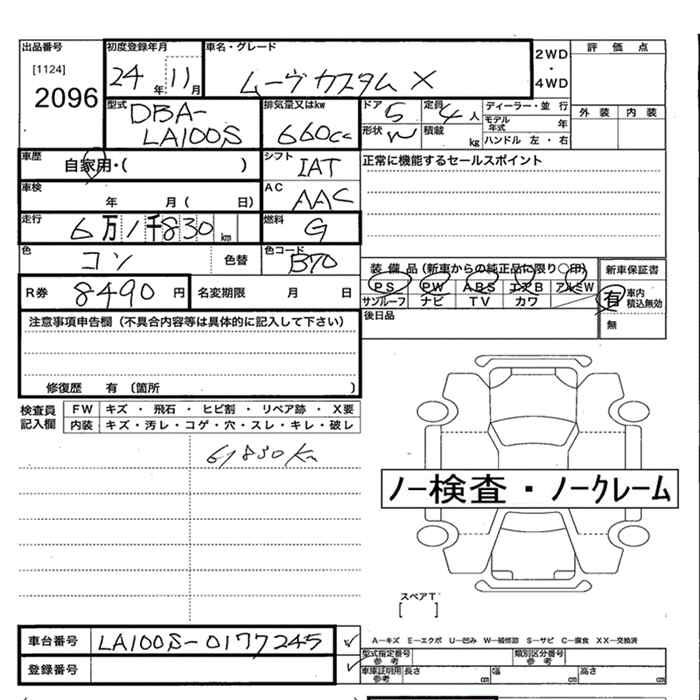 出品番号 初度登録年月 車名・グレード 2WD・4WD 評価点
[1124]
2096
24年 11月 ムーヴカスタム X
外装 内装
型式 DBA-LA100S 排気量又はkw 660cc ドア 5 定員 4人 ディーラー・並行
形状 積載 kg モデル年式 年
ハンドル 左・右
車歴 自家用・( ) シフト IAT 正常に機能するセールスポイント
車検 年 月( 日) AC AAC
走行 6万1千830km 燃料 G
色 コン 色替 色コード B70 装備品(新車からの純正品に限り○印) 新車保証書
PS PW ABS エアB アルミW
R券 8490円 名変期限 月 日 サンルーフ ナビ TV カワ 有 車内積込無効
後日品 無
注意事項申告欄(不具合内容等は具体的に記入して下さい)
修復歴 有 (箇所 )
検査員記入欄 FW キズ・飛石・ヒビ割・リペア跡・X要
内装 キズ・汚レ・コゲ・穴・スレ・キレ・破レ
61830Km
ノー検査・ノークレーム
スペアT
[ ]
車台番号 LA100S-0177245
A−キズ E−エクボ U−凹み W−補修跡 S−サビ C−腐食 XX−交換済
登録番号 型式指定番号 参考 類別区分番号 参考
車庫証明用参考 長さ cm 幅 cm 高さ cm